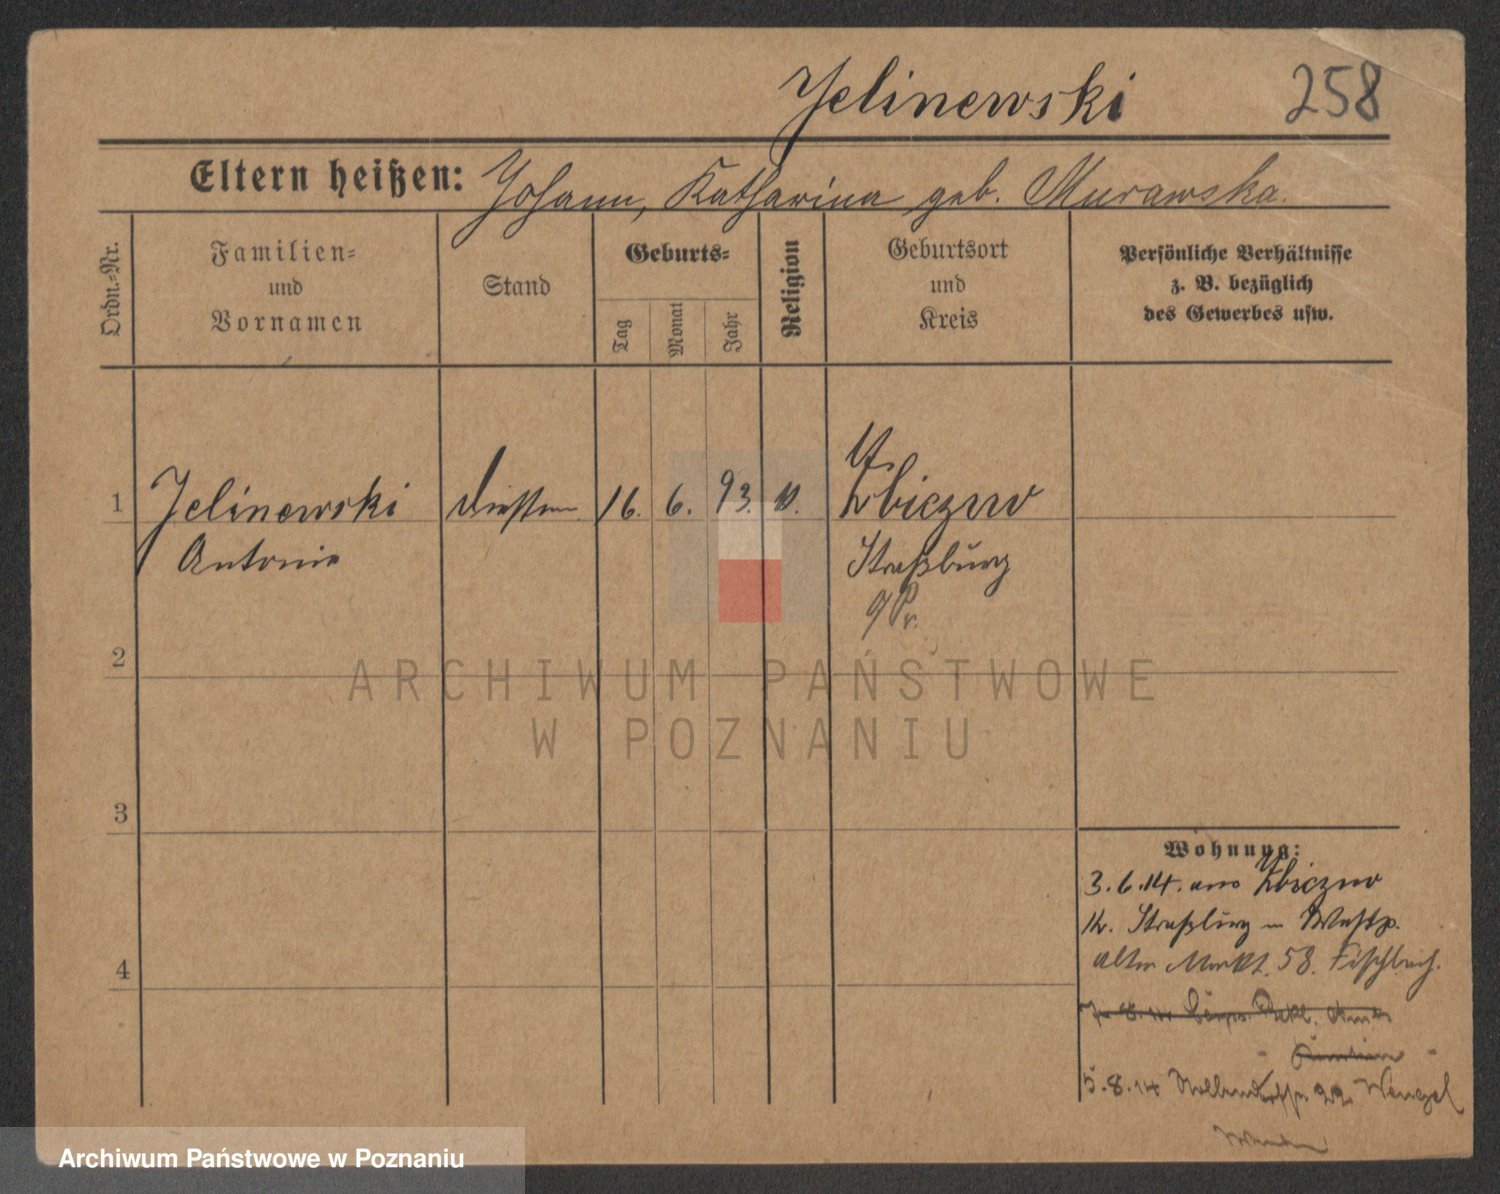 Jelinewski 258
Eltern heißen: Johann, Katharina geb. Murawska.
Ordn.-Nr.
Familien-
und
Vornamen
Stand
Geburts-
Tag
Monat
Jahr
Religion
Geburtsort
und
Kreis
Persönliche Verhältnisse
z. B. bezüglich
des Gewerbes usw.
1 Jelinewski 16. 6. 93. Zbiczno
Antonie Straßburg
2
3
4
ARCHIWUM PAŃSTWOWE
W POZNANIU
Wohnung:
3.6.14. aus Zbiczno
Kr. Straßburg in Westp.
Alter Markt. 58. Fischbach.
5.8.14 22 Wenzel
Archiwum Państwowe w Poznaniu